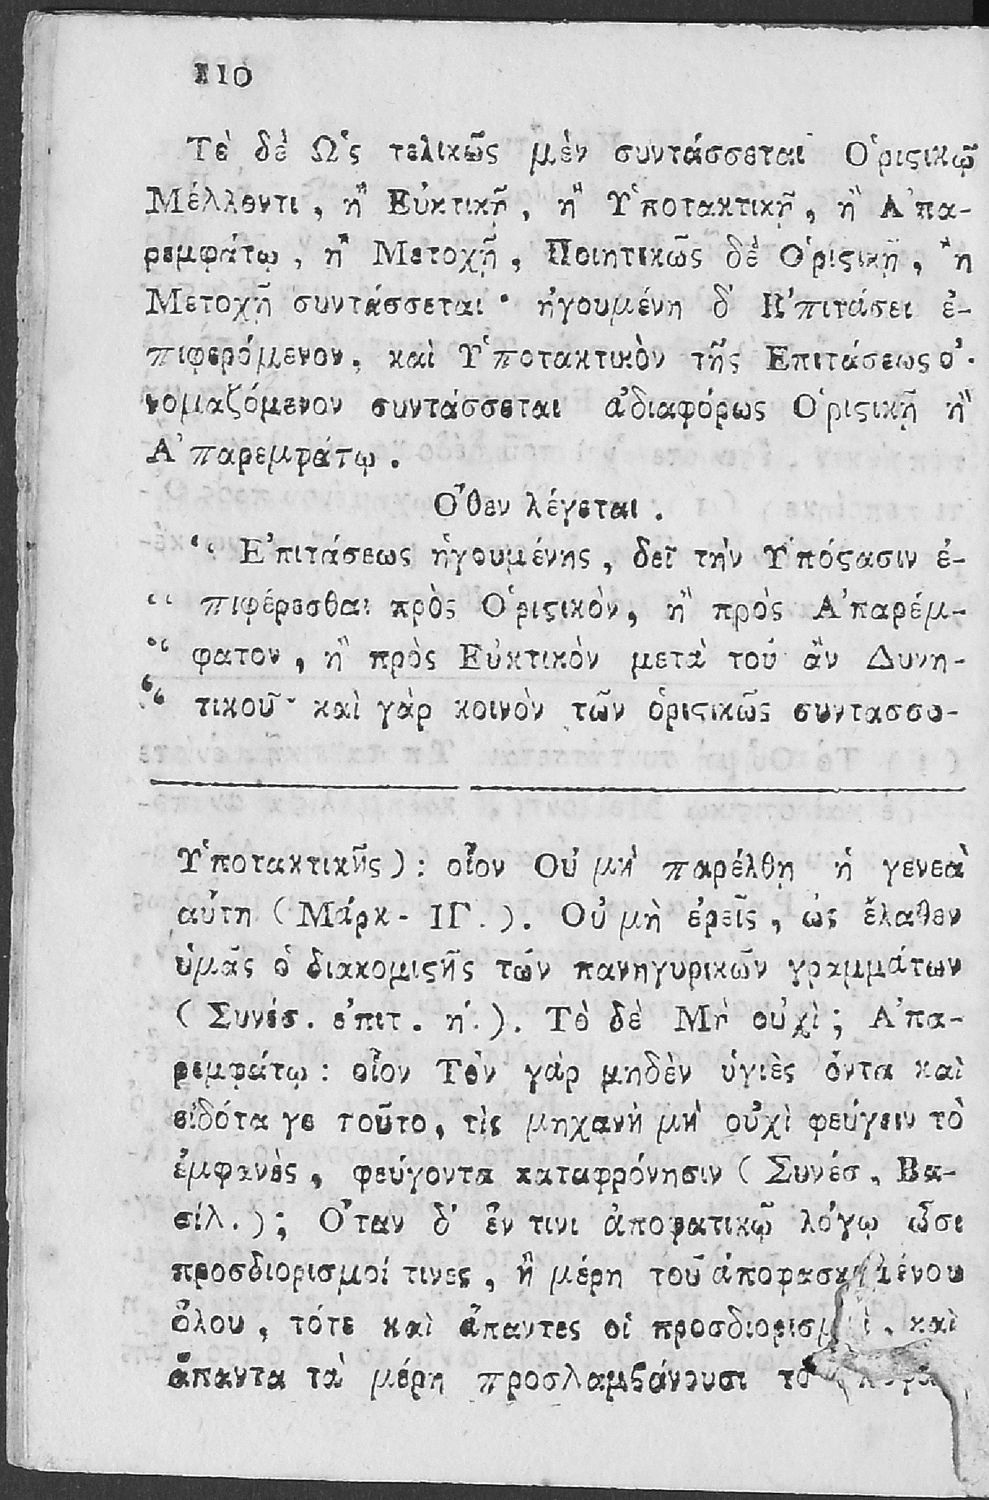 110
Τὸ δὲ Ὡς τελικῶς μὲν συντάσσεται Ὁριϛικῷ
Μέλλοντι, ἢ Εὐκτικῇ, ἢ Ὑποτακτικῇ, ἢ Ἀπα-
ρεμφάτῳ, ἢ Μετοχῇ, Ποιητικῶς δὲ Ὁριϛικῇ, ἢ
Μετοχῇ συντάσσεται· ἡγουμένη δ' Ἐπιτάσει ἐ-
πιφερόμενον, καὶ Ὑποτακτικὸν τῆς Ἐπιτάσεως ὀ-
νομαζόμενον συντάσσεται ἀδιαφόρως Ὁριϛικῇ ἢ
Ἀπαρεμφάτῳ.
Ὅθεν λέγεται.
“ Ἐπιτάσεως ἡγουμένης, δεῖ τὴν Ὑπόϛασιν ἐ-
“ πιφέρεσθαι πρὸς Ὁριϛικὸν, ἢ πρὸς Ἀπαρέμ-
“ φατον, ἢ πρὸς Εὐκτικὸν μετὰ τοῦ ἂν Δυνη-
“ τικοῦ· καὶ γὰρ κοινὸν τῶν ὁριϛικῶς συντασσο-
Ὑποτακτικῆς): οἷον Οὐ μὴ παρέλθῃ ἡ γενεὰ
αὕτη (Μάρκ- ΙΓ.). Οὐ μὴ ἐρεῖς, ὡς ἔλαθεν
ὑμᾶς ὁ διακομιϛὴς τῶν πανηγυρικῶν γραμμάτων
(Συνέσ. ἐπιτ. ή.). Τὸ δὲ Μὴ οὐχὶ; Ἀπα-
ρεμφάτῳ: οἷον Τὸν γὰρ μηδὲν ὑγιὲς ὄντα καὶ
εἰδότα γε τοῦτο, τὶς μηχανὴ μὴ οὐχὶ φεύγειν τὸ
ἐμφανὲς, φεύγοντα καταφρόνησιν (Συνέσ. Βα-
σίλ.); Ὅταν δ' ἔν τινι ἀποφατικῷ λόγῳ ὦσι
προσδιορισμοί τινες, ἢ μέρη τοῦ ἀποφασκομένου
ὅλου, τότε καὶ ἅπαντες οἱ προσδιορισμοὶ, καὶ
ἅπαντα τὰ μέρη προσλαμβάνουσι τὸ